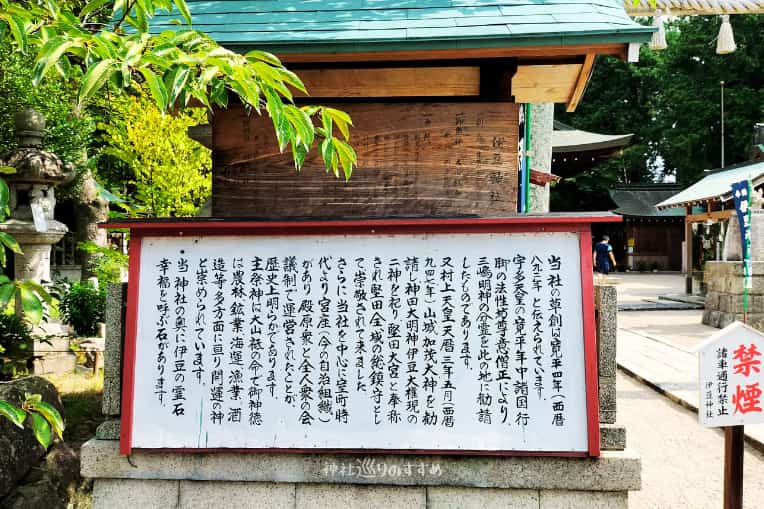 伊豆神社
当社の草創は寛平四年(西暦
八九二年)と伝えられています。
宇多天皇の寛平年中諸国行
脚の法性坊尊意僧正により、
三嶋明神の分霊を此の地に勧請
したものであります。
又村上天皇天暦三年五月(西暦
九四七年)山城加茂大神を勧
請し神田大明神伊豆大権現の
二神を祀り、堅田大宮と奉称
され堅田全域の総鎮守とし
て崇敬されて来ました。
さらに当社を中心に室町時
代より宮座(今の自治組織)
があり殿原衆と全人衆の会
議制で運営されたことが、
歴史上明らかであります。
主祭神に大山祗の命で御神徳
は農林、鉱業、海運、漁業、酒
造等多方面に亘り開運の神
と崇められています。
当神社の奥に伊豆の霊石
幸福を呼ぶ石があります。
禁煙
諸車通行禁止
伊豆神社
神社巡りのすすめ